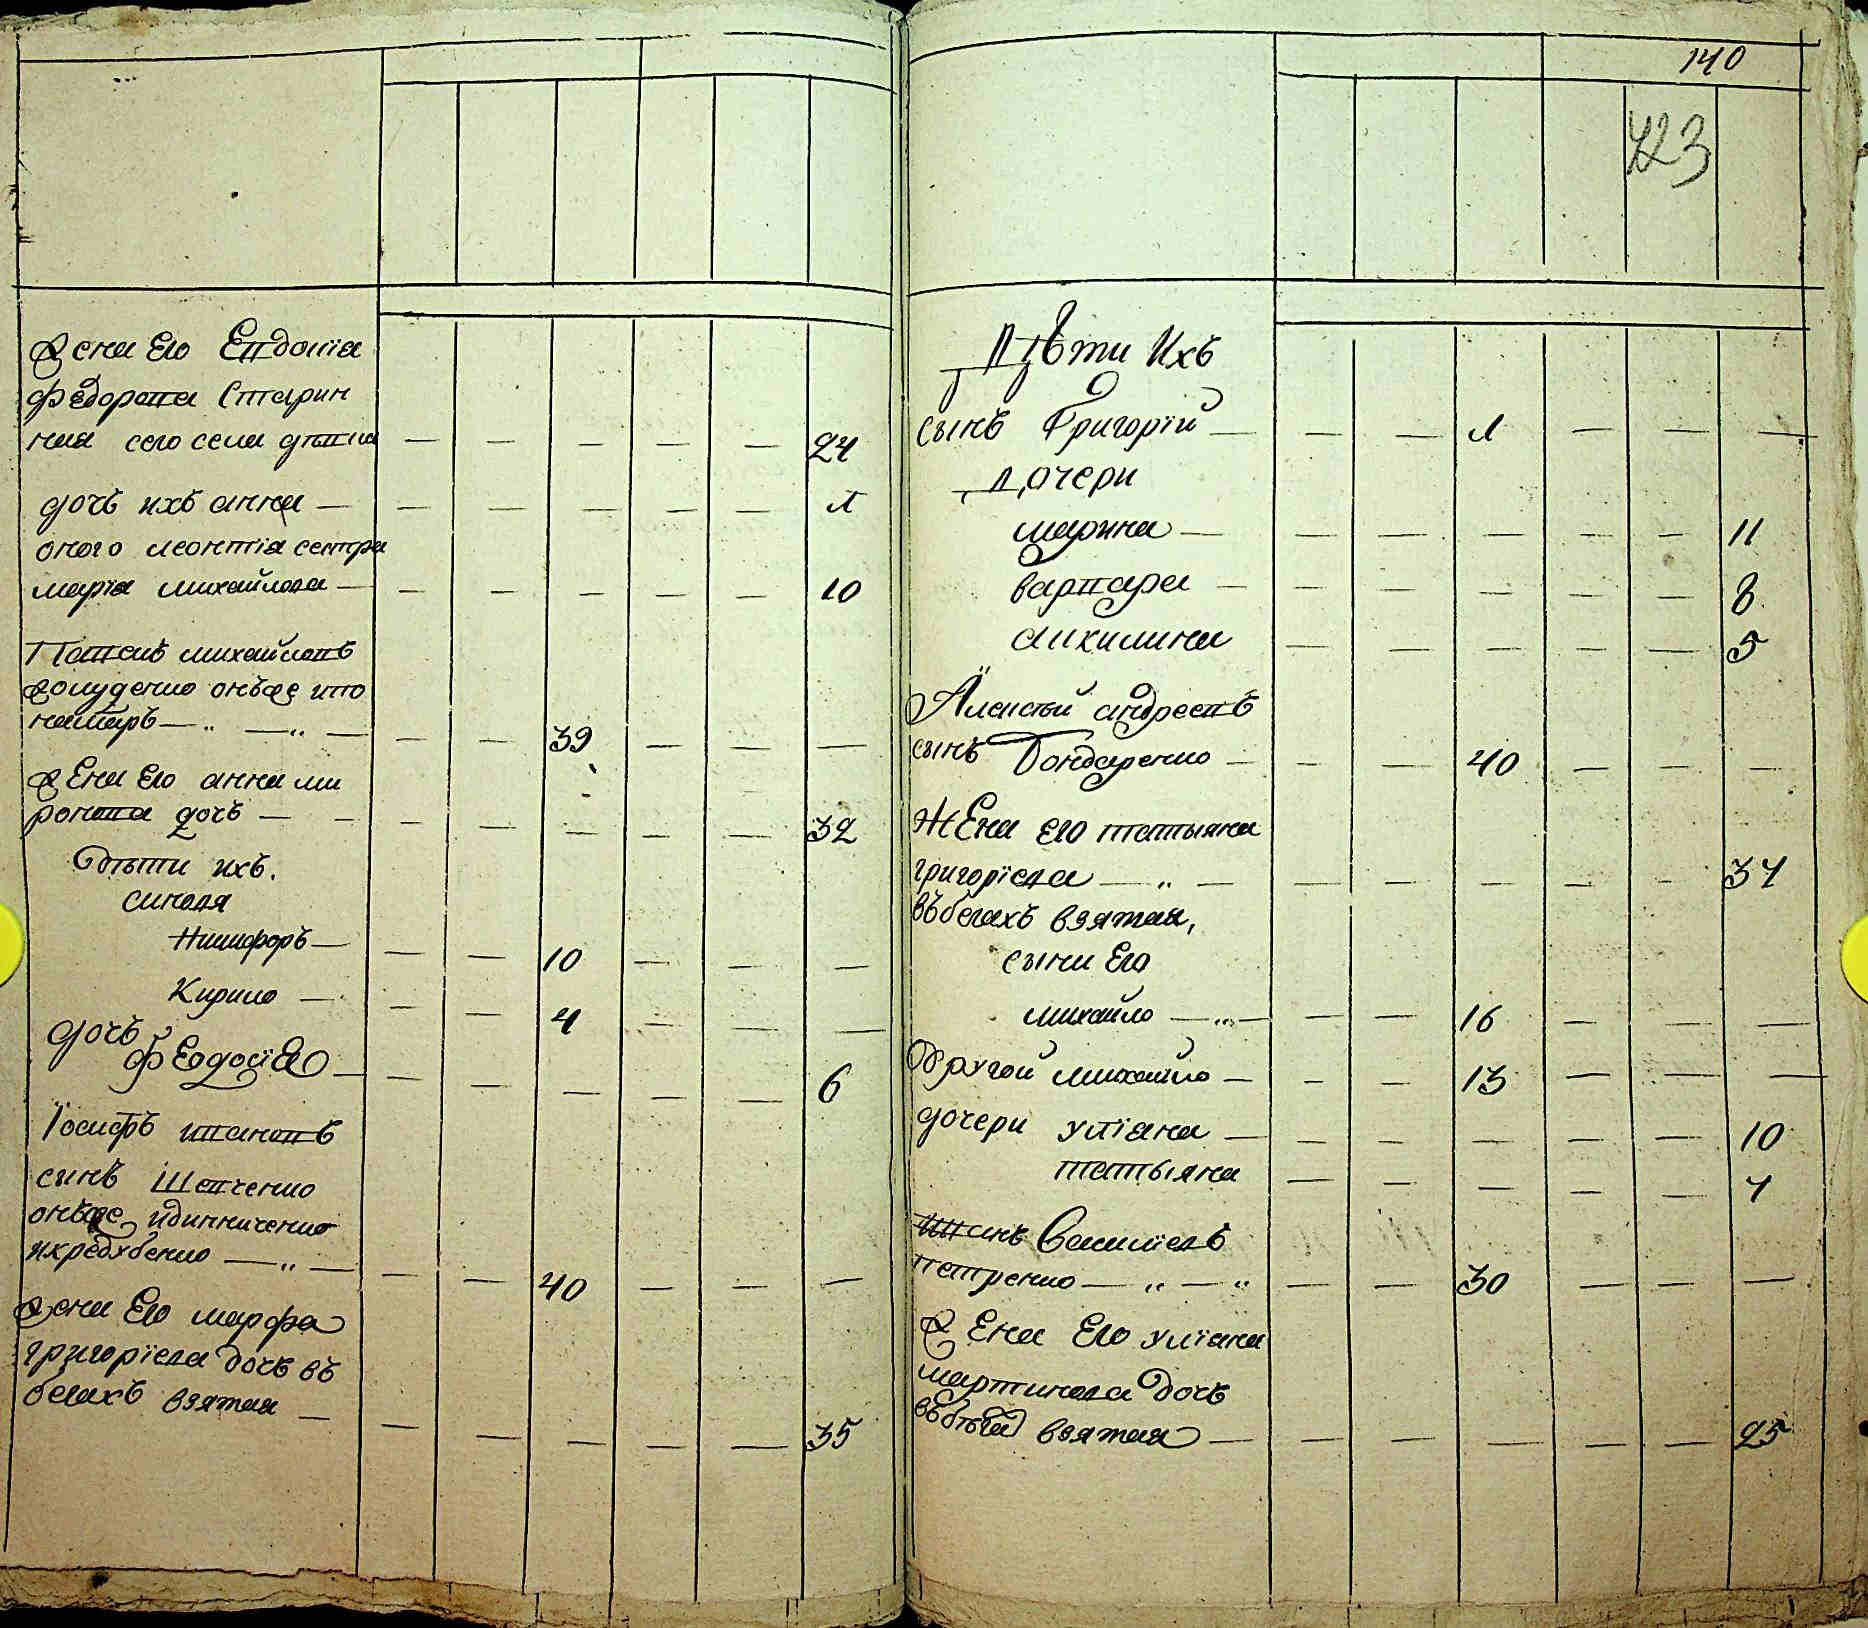 жена Его Евдокіа
федорова Старин
ная сего села дѣвка — — — — — 24
дочь ихъ анна — — — — — — 1
оного леонтіа сестра
маріа михайлова — — — — — — 10
михайловъ
голуденко онъже
— „ — „ — — — 39 — — —
жена Его анна ми
ронова дочь — — — — — — — 32
дѣти ихъ.
синовя
Никифоръ — — — 10 — — —
Кирило — — — 4 — — —
дочь
фЕодосіа — — — — — — 6
Іосифъ ивановъ
синъ Шевченко
онъже
— „ — — — 40 — — —
жена Его марфа
григоріева дочь въ
бегахъ взятая — — — — — — 35
140
423
Дѣти Ихъ
сынъ Григорій — — — 1 — — —
дочери
марина — — — — — — 11
варвара — — — — — — 8
акилина — — — — — 5
Алексѣй андреевъ
сынъ Бондаренко — — — 40 — — —
жЕна его татьяна
григоріева — „ — — — — — — — 34
въбегахъ взятая,
сыни Его
михайло — „ — — — 16 — — —
другой михайло — — — 13 — — —
дочери уліана — — — — — — 10
татьяна — — — — — 4
иванъ Василіевъ
петренко — „ — „ — — 30 — — —
жЕна Его уліана
мартинова дочь
въбѣгах взятая — — — — — — 25